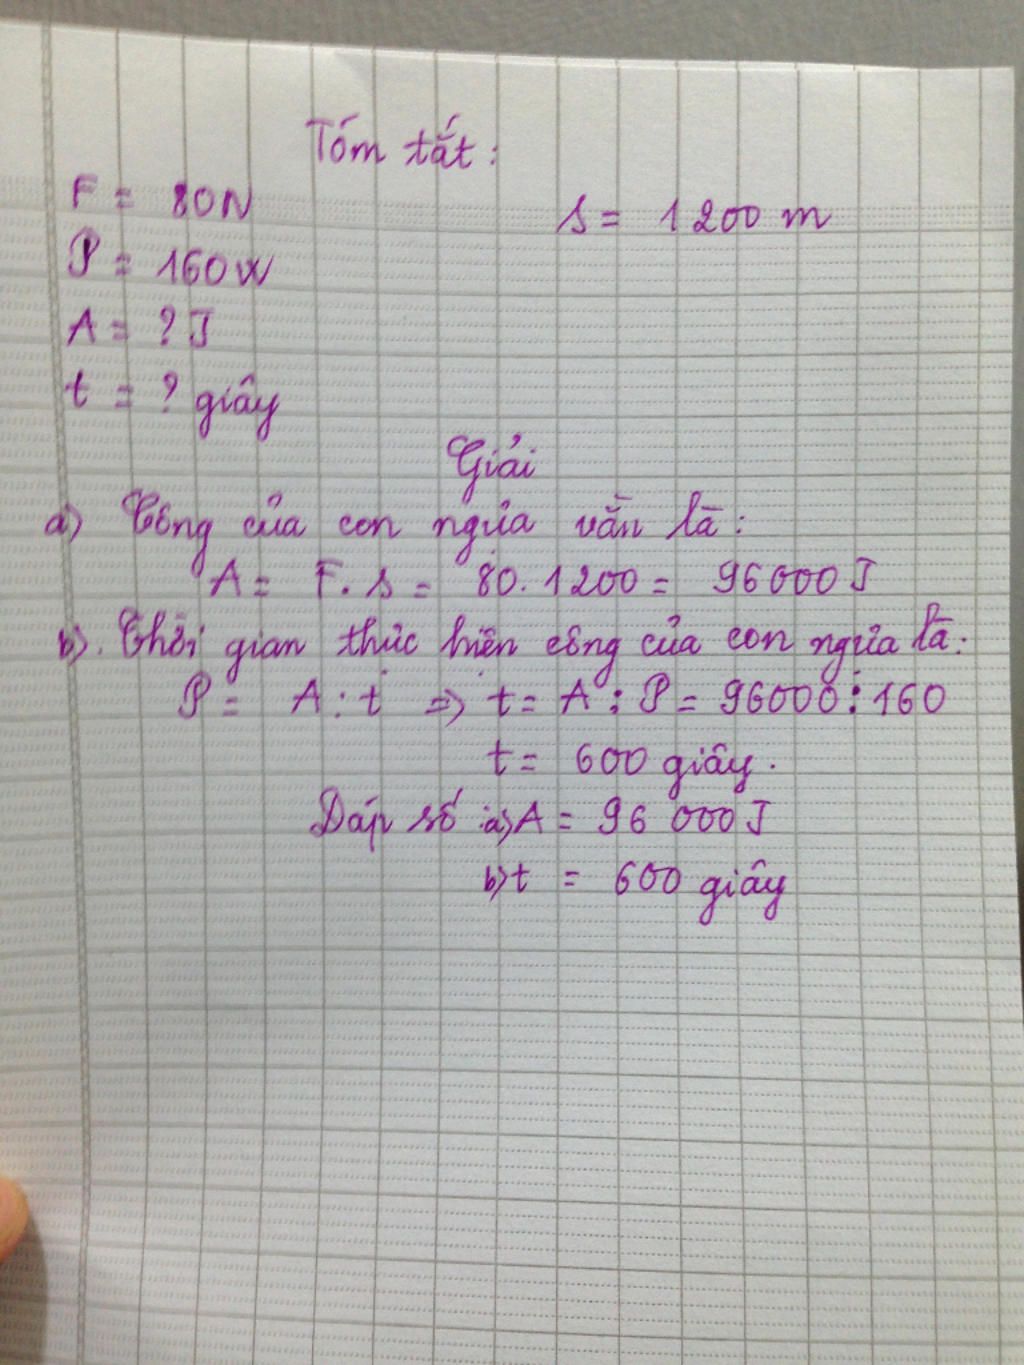 Tóm tắt:
F = 80N
s = 1200 m
P = 160W
A = ? J
t = ? giây
Giải
a) Công của con ngựa vằn là:
A = F. s = 80. 1200 = 96000J
b). Thời gian thực hiện công của con ngựa là:
P = A : t => t = A : P = 96000 : 160
t = 600 giây.
Đáp số : a) A = 96 000J
b) t = 600 giây